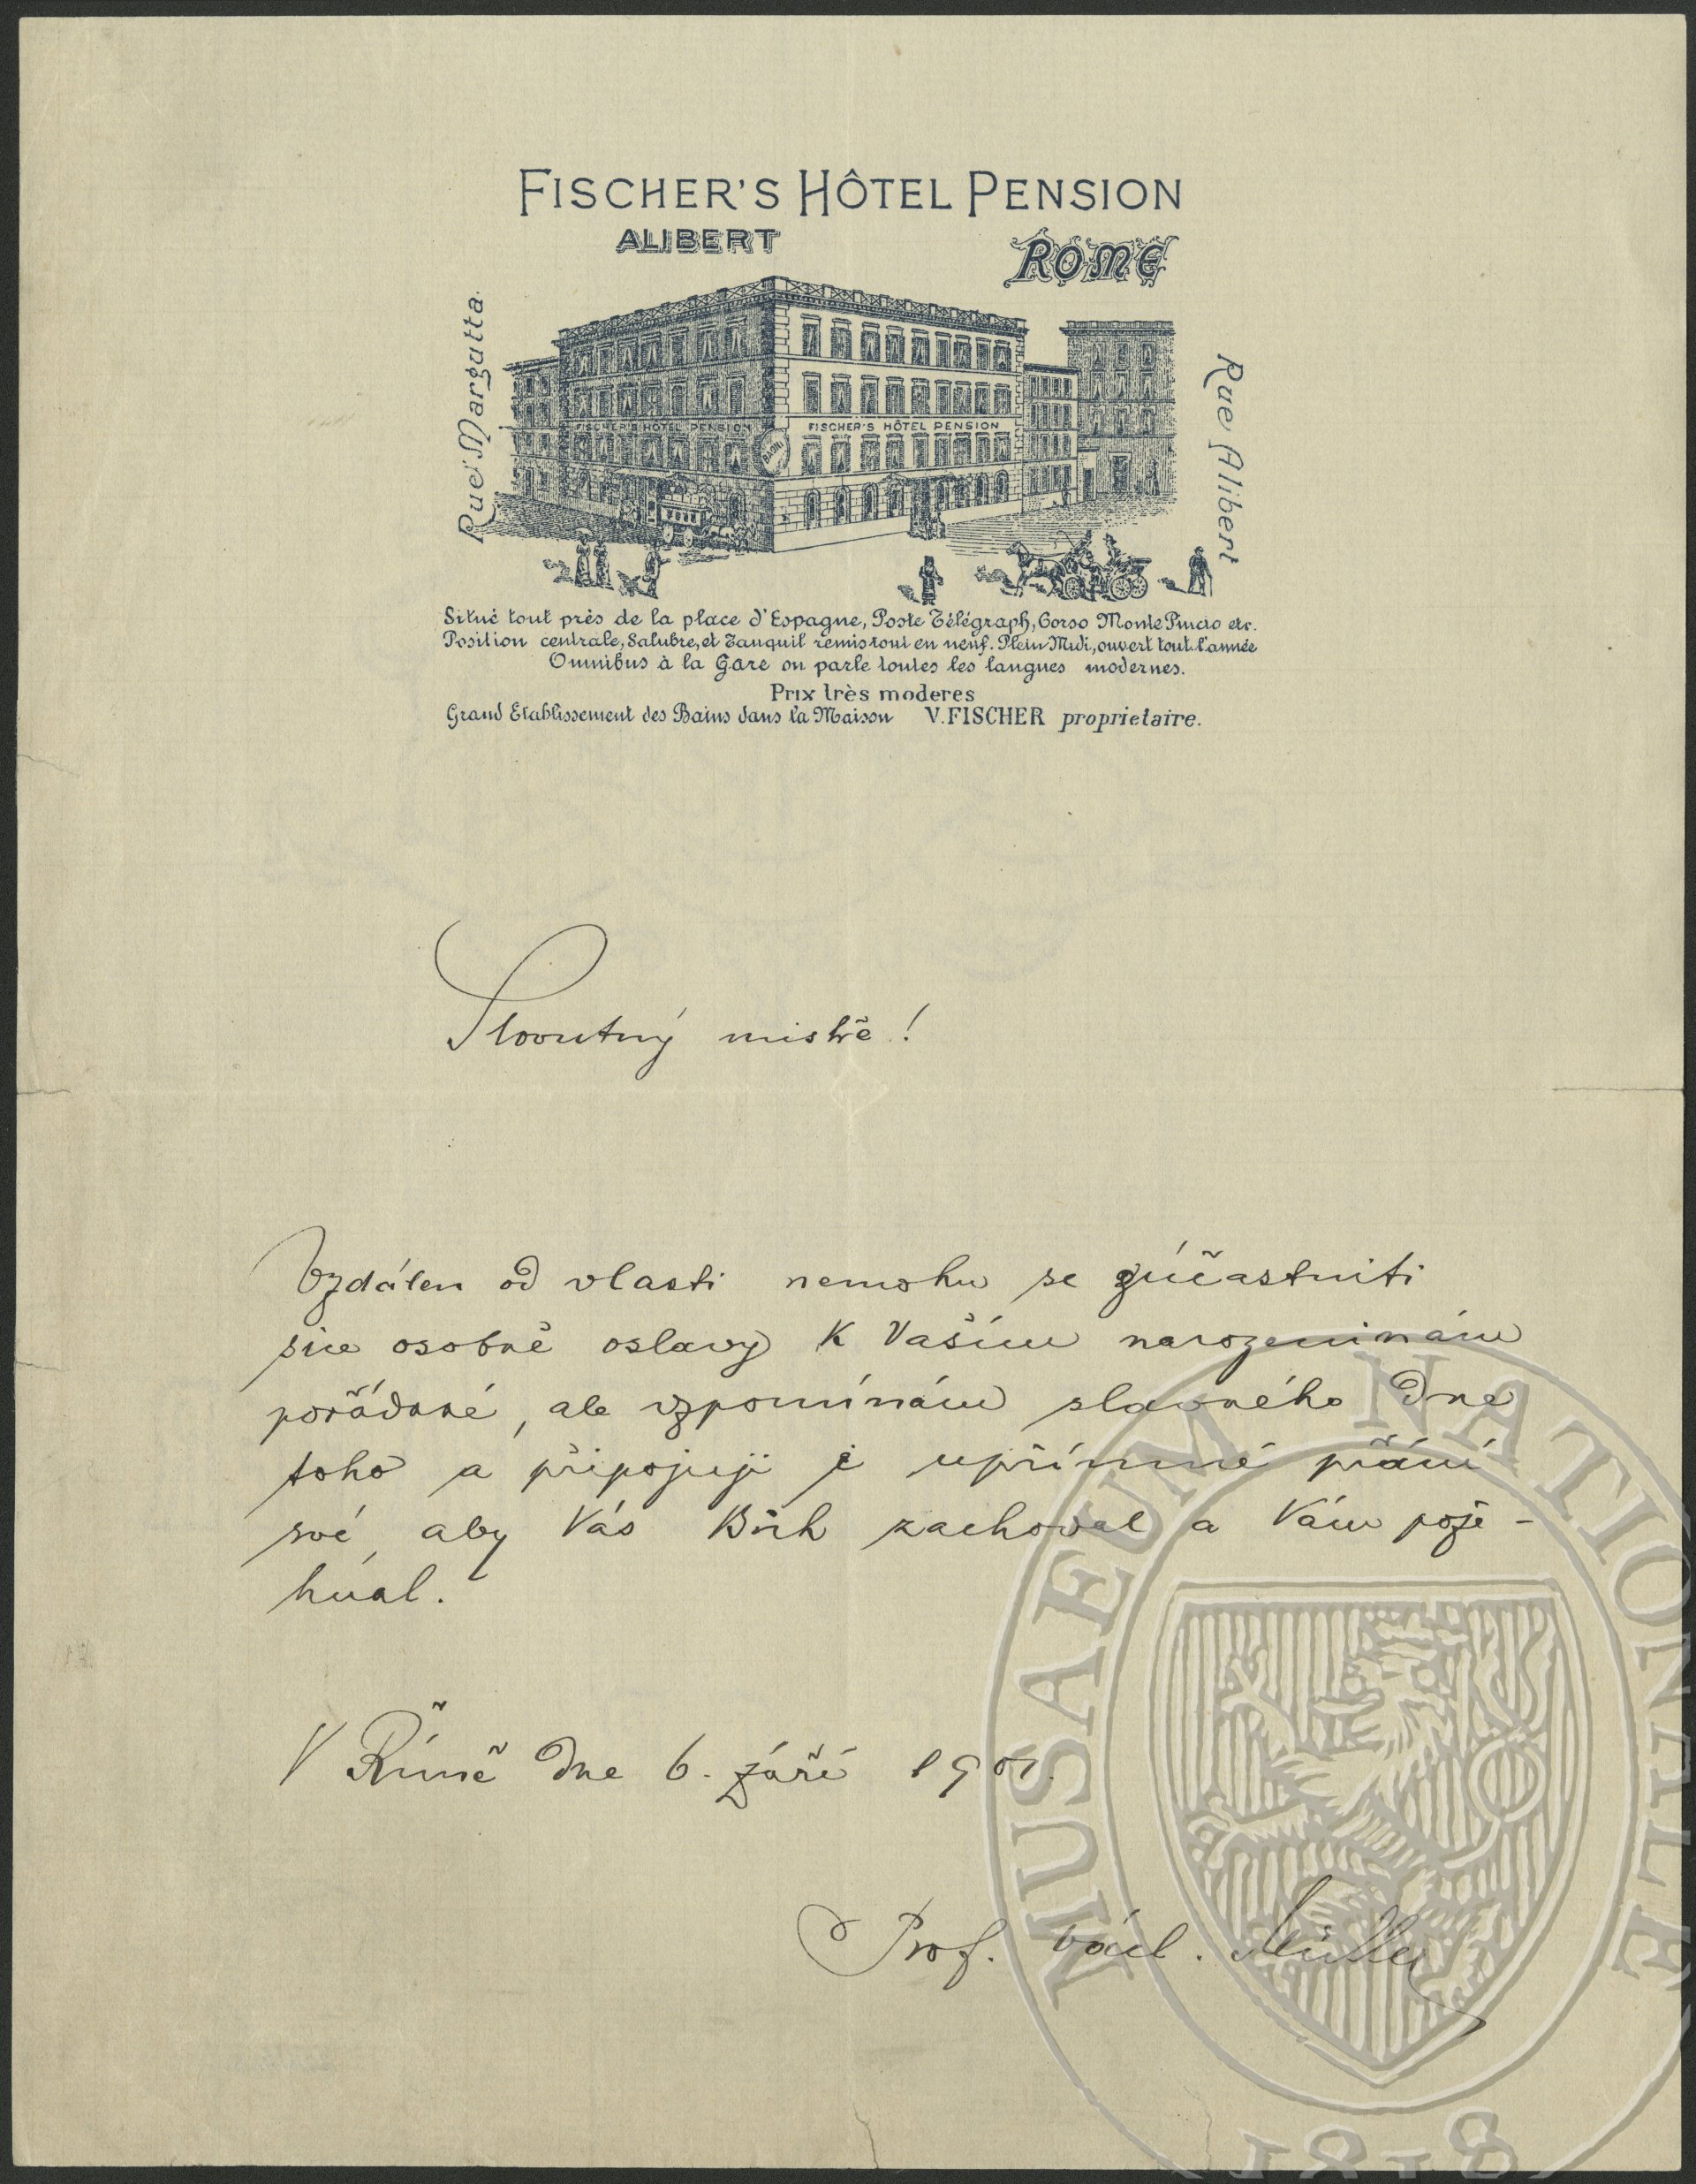 FISCHER'S HÔTEL PENSION
ALIBERT
ROME
Rue Margutta.
Rue Alibert
FISCHER'S HÔTEL PENSION
FISCHER'S HÔTEL PENSION
BAGNI
Situé tout près de la place d'Espagne, Poste Télégraph, Corso Monte Pincio etc.
Position centrale, Salubre, et Tanquil remis tout en neuf. Plein Midi, ouvert tout l'année
Omnibus à la Gare on parle toutes les langues modernes.
Prix très moderes
Grand Etablissement des Bains dans la Maison V. FISCHER proprietaire.
Slovutný mistře!
Vzdálen od vlasti nemohu se zúčastniti
sice osobně oslavy k Vašim narozeninám
pořádané, ale vzpomínám slavného dne
toho a připojuji i upřímné přání
své, aby Vás Bůh zachoval a Vám pože-
hnal.
V Římě dne 6. září 1901.
Prof. Václ. Müller
MUSAEUM NATIONALE
1818